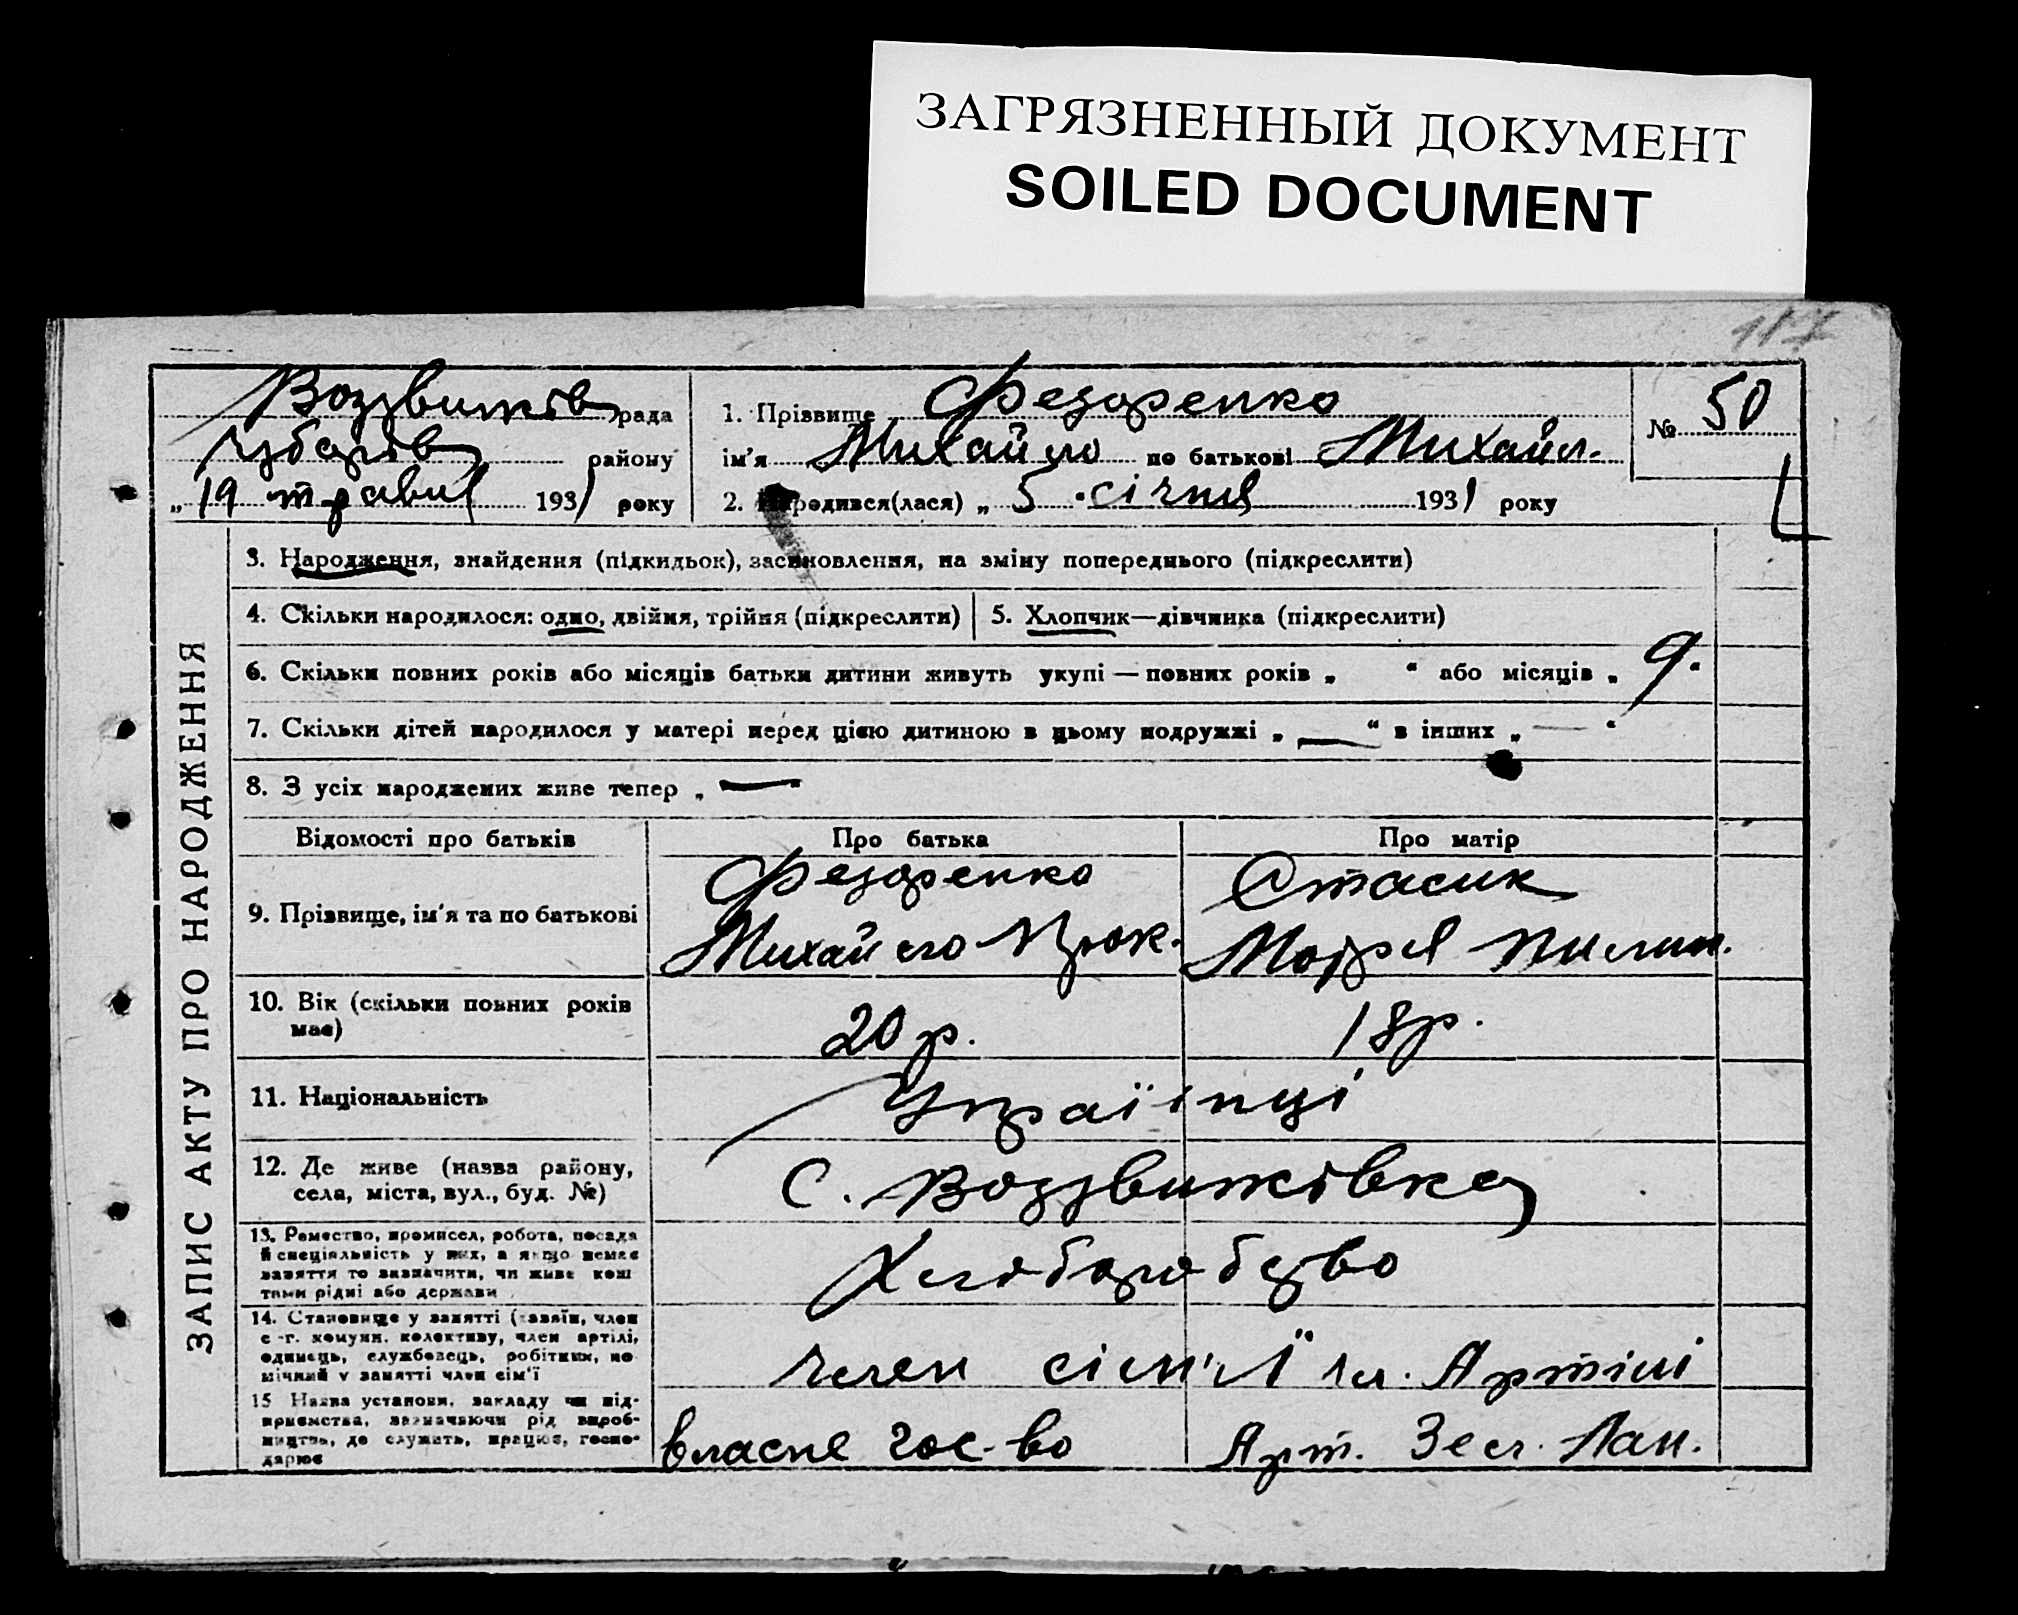 ЗАГРЯЗНЕННЫЙ ДОКУМЕНТ
SOILED DOCUMENT
117
Воздвижків рада
Чубарів району
„ 19 травня 1931 року
1. Прізвище Федоренко
ім'я Михайло по батькові Михайл.
2. Народився(лася) „ 5 " січня 1931 року
№ 50
ЗАПИС АКТУ ПРО НАРОДЖЕННЯ
3. Народження, знайдення (підкидьок), засвновлення, на зміну попереднього (підкреслити)
4. Скільки народилося: одно, двійня, трійня (підкреслити)
5. Хлопчик—дівчинка (підкреслити)
6. Скільки повних років або місяців батьки дитини живуть укупі — повних років „ “ або місяців „ 9.
7. Скільки дітей народилося у матері перед цією дитиною в цьому подружжі „ — “ в інших „ — “
8. З усіх народжених живе тепер „ — “
Відомості про батьків
Про батька
Про матір
9. Прізвище, ім'я та по батькові
Федоренко
Михайло Прок.
Стасик
Мотря Пилип.
10. Вік (скільки повних років
має)
20 р.
18 р.
11. Національність
Українці
12. Де живе (назва району,
села, міста, вул., буд. №)
С. Воздвижківка
13. Ремество, промисел, робота, посада
й спеціяльність у них, а якщо немає
заняття то зазначити, чи живе кош
тами рідні або держави
Хліборобство
14. Становище у занятті (хазяїн, член
с.-г. комуни, колективу, член артілі,
одинець, службовець, робітник, по
мічний у занятті член сім'ї
член сім'ї чл. Артілі
15 Назва установи, закладу чи під-
приємства, зазначаючи рід вироб-
ництва, де служить, працює, госпо-
дарює
власне гос-во
Арт. Зел. Лан.